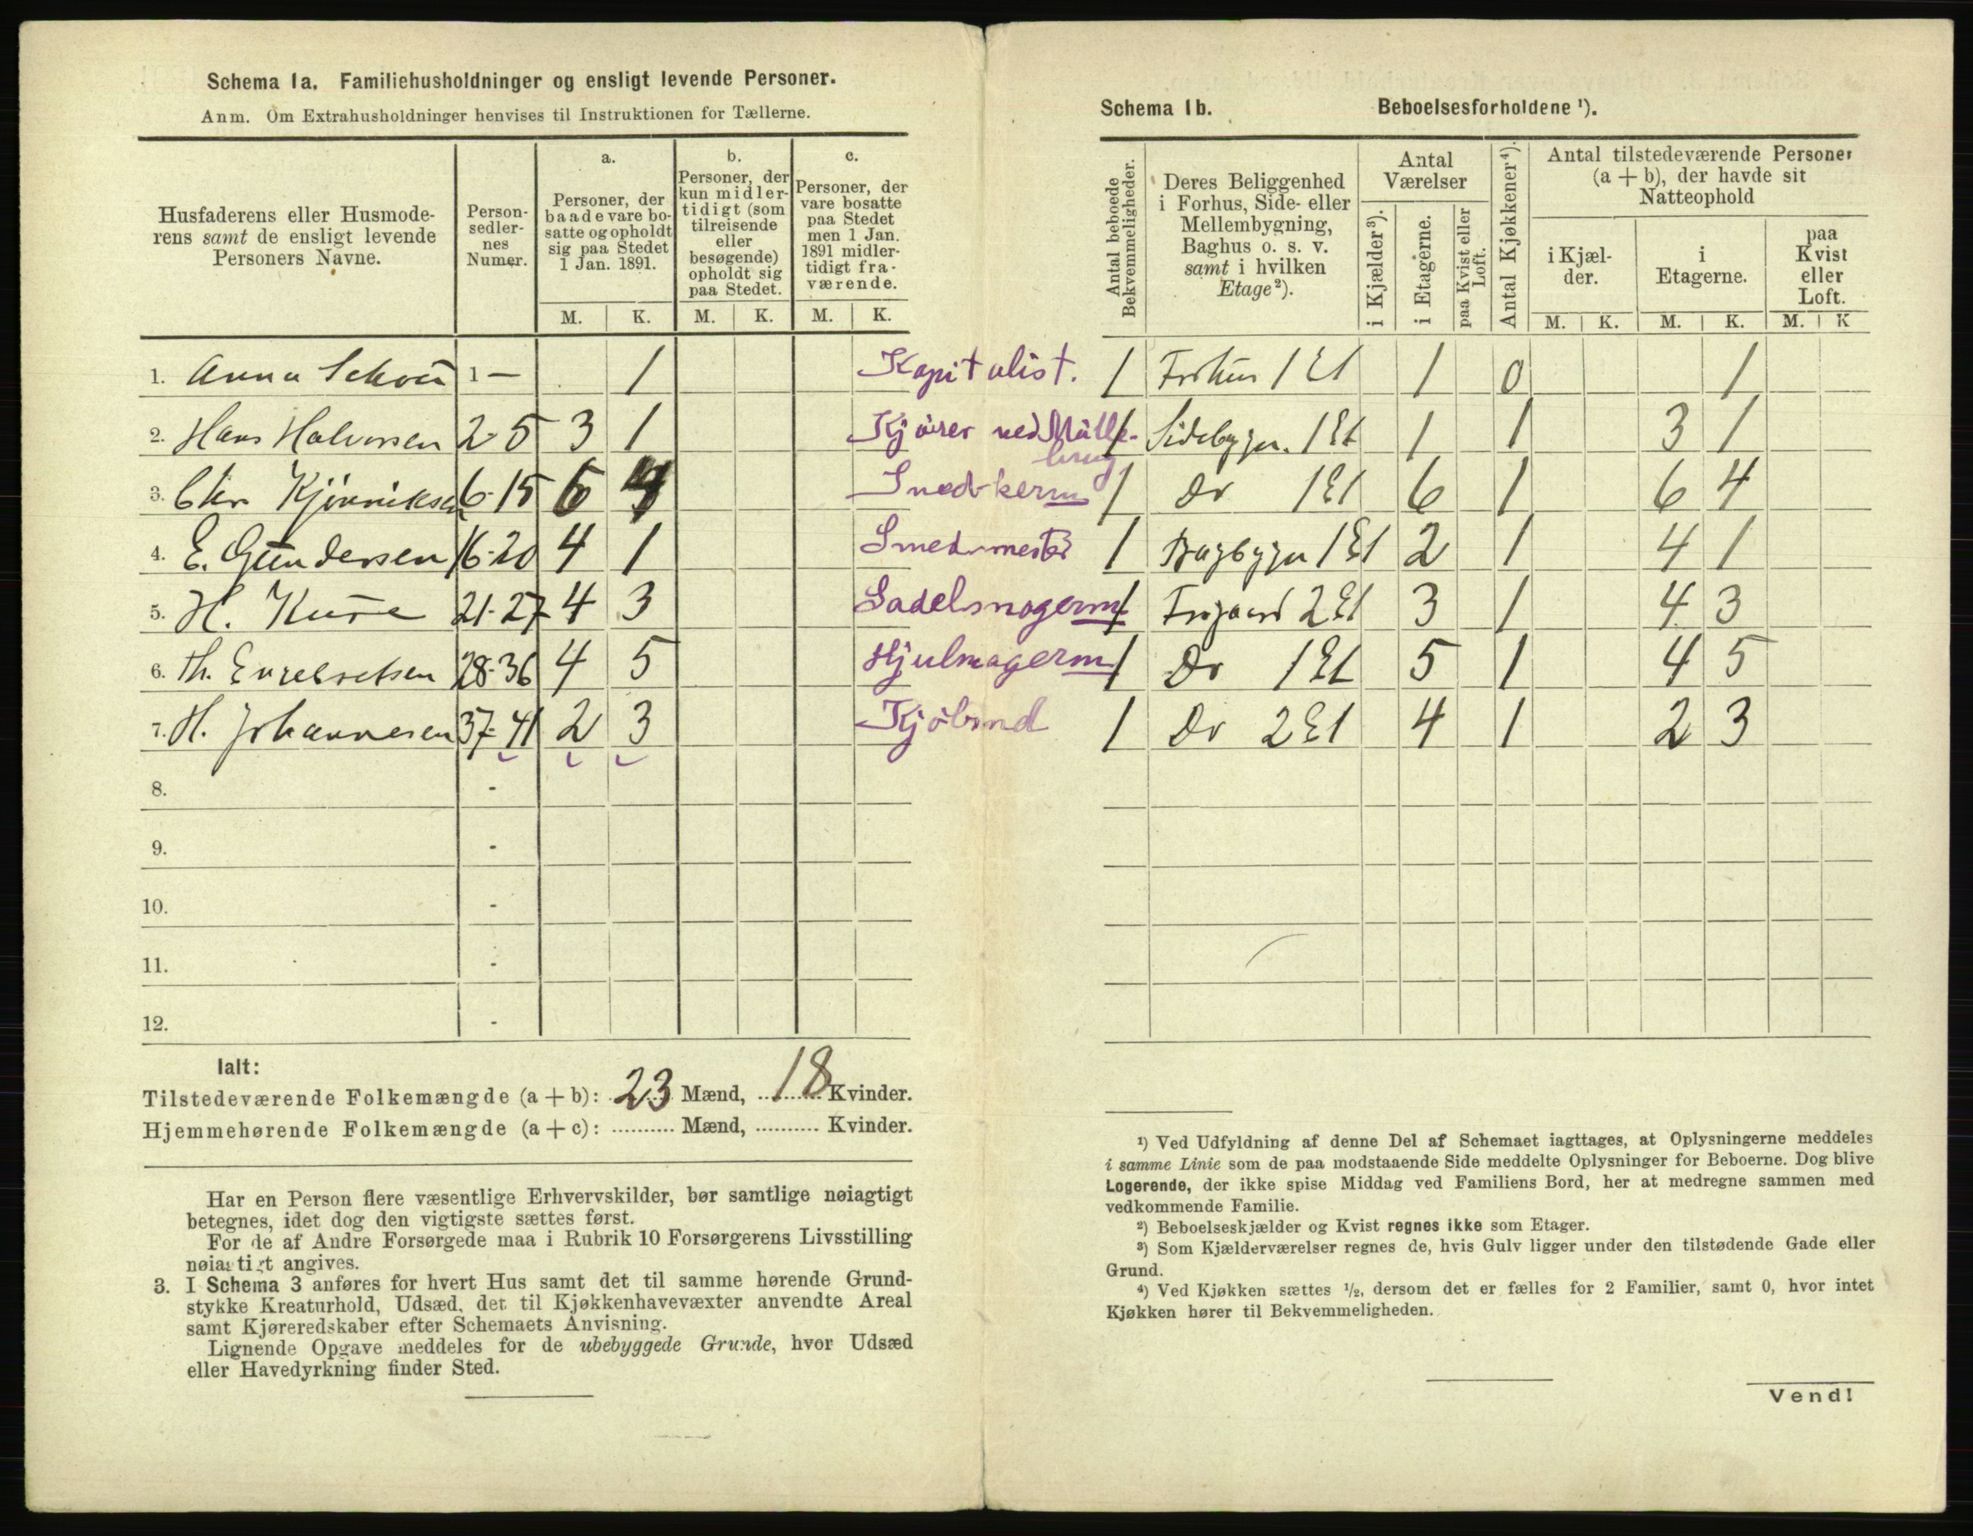 Schema Ia. Familiehusholdninger og ensligt levende Personer.
Anm. Om Extrahusholdninger henvises til Instruktionen for Tællerne.
Husfaderens eller Husmoderens samt de ensligt levende Personers Navne.
Personsedlernes Numer.
a. Personer, der baade vare bosatte og opholdt sig paa Stedet 1 Jan. 1891.
b. Personer, der kun midlertidigt (som tilreisende eller besøgende) opholdt sig paa Stedet.
c. Personer, der vare bosatte paa Stedet men 1 Jan. 1891 midlertidigt fraværende.
M. K. M. K. M. K.
1. Anna 1 — 1 Kapitalist.
2. Hans Halvorsen 2-5 3 1 Kjører ved Möllebrug
3. Chr 6-15 6 4 Snedkerm
4. E. Gundersen 16-20 4 1 Smedmester
5. H. Kure 21-27 4 3 Sadelmagerm
6. Th. 28-36 4 5 Hjulmagerm
7. H. Johannesen 37-41 2 3 Kjöbmd
8. -
9. -
10. -
11. -
12. -
Ialt:
Tilstedeværende Folkemængde (a + b): 23 Mænd, 18 Kvinder.
Hjemmehørende Folkemængde (a + c): .......... Mænd, .......... Kvinder.
Har en Person flere væsentlige Erhvervskilder, bør samtlige nøiagtigt
betegnes, idet dog den vigtigste sættes først.
For de af Andre Forsørgede maa i Rubrik 10 Forsørgerens Livsstilling
nøiagtigt angives.
3. I Schema 3 anføres for hvert Hus samt det til samme hørende Grund-
stykke Kreaturhold, Udsæd, det til Kjøkkenhavevæxter anvendte Areal
samt Kjøreredskaber efter Schemaets Anvisning.
Lignende Opgave meddeles for de ubebyggede Grunde, hvor Udsæd
eller Havedyrkning finder Sted.
Schema Ib. Beboelsesforholdene ¹).
Antal beboede Bekvemmeligheder.
Deres Beliggenhed i Forhus, Side- eller Mellembygning, Baghus o. s. v. samt i hvilken Etage²).
Antal Værelser
i Kjælder³).
i Etagerne.
paa Kvist eller Loft.
Antal Kjøkkener⁴).
Antal tilstedeværende Personer (a + b), der havde sit Natteophold
i Kjælder.
i Etagerne.
paa Kvist eller Loft.
M. K. M. K. M. K
1 Forhus 1 Et 1 0 1
1 Sidebygn. 1 Et 1 1 3 1
1 Do 1 Et 6 1 6 4
1 Bagbygn 1 Et 2 1 4 1
1 2 Et 3 1 4 3
1 Do 1 Et 5 1 4 5
1 Do 2 Et 4 1 2 3
¹) Ved Udfyldning af denne Del af Schemaet iagttages, at Oplysningerne meddeles
i samme Linie som de paa modstaaende Side meddelte Oplysninger for Beboerne. Dog blive
Logerende, der ikke spise Middag ved Familiens Bord, her at medregne sammen med
vedkommende Familie.
²) Beboelseskjælder og Kvist regnes ikke som Etager.
³) Som Kjælderværelser regnes de, hvis Gulv ligger under den tilstødende Gade eller
Grund.
⁴) Ved Kjøkken sættes ½, dersom det er fælles for 2 Familier, samt 0, hvor intet
Kjøkken hører til Bekvemmeligheden.
Vend!